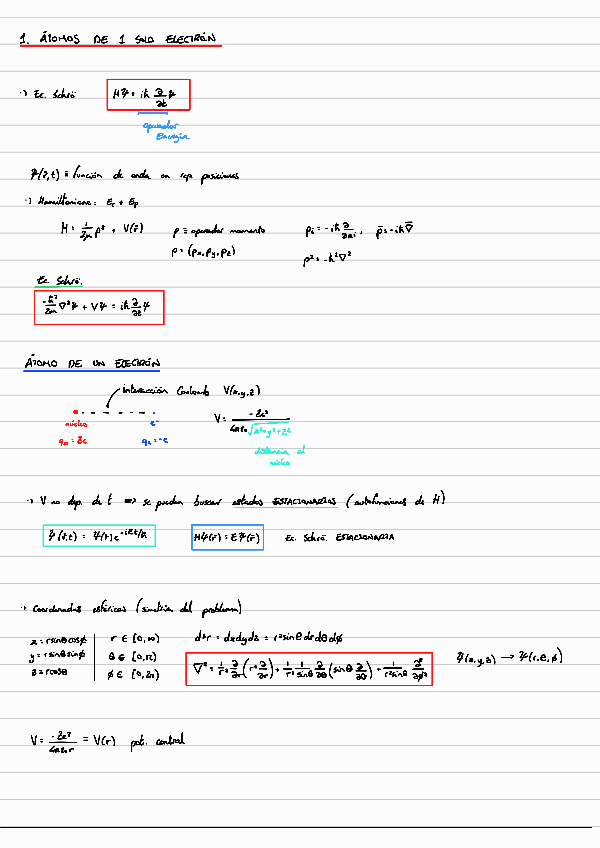 1. ÁTOMOS DE 1 SOLO ELECTRÓN
·) Ec. Schrö: HΨ = iħ ∂/∂t Ψ
operador
Energía
Ψ(r,t) ≡ función de onda en rep. posiciones
·) Hamiltoniano: Ec + Ep
H = 1/2μ p² + V(r) p ≡ operador momento pi = -iħ ∂/∂xi, p = -iħ∇
p = (px, py, pz) p² = -ħ²∇²
Ec. Schrö.
-ħ²/2μ ∇²Ψ + VΨ = iħ ∂/∂t Ψ
ÁTOMO DE UN ELECTRÓN
interacción Coulomb V(x,y,z)
núcleo e⁻ V = -Ze²/4πε₀√x²+y²+z²
qn = Ze qe = -e
distancia al
núcleo
·) V no dep. de t ⇒ se pueden buscar estados ESTACIONARIOS (autofunciones de H)
Ψ(r,t) = Ψ(r)e^-iEt/ħ HΨ(r) = EΨ(r) Ec. Schrö. ESTACIONARIA
·) Coordenadas esféricas (simetría del problema)
x = rsinθcosϕ r ∈ [0,∞) d³r = dxdydz = r²sinθdrdθdϕ
y = rsinθsinϕ θ ∈ [0,π]
z = rcosθ ϕ ∈ [0,2π)
∇² = 1/r² ∂/∂r (r² ∂/∂r) + 1/r² 1/sinθ ∂/∂θ (sinθ ∂/∂θ) + 1/r²sin²θ ∂²/∂ϕ² Ψ(x,y,z) → Ψ(r,θ,ϕ)
V = -Ze²/4πε₀r = V(r) pot. central